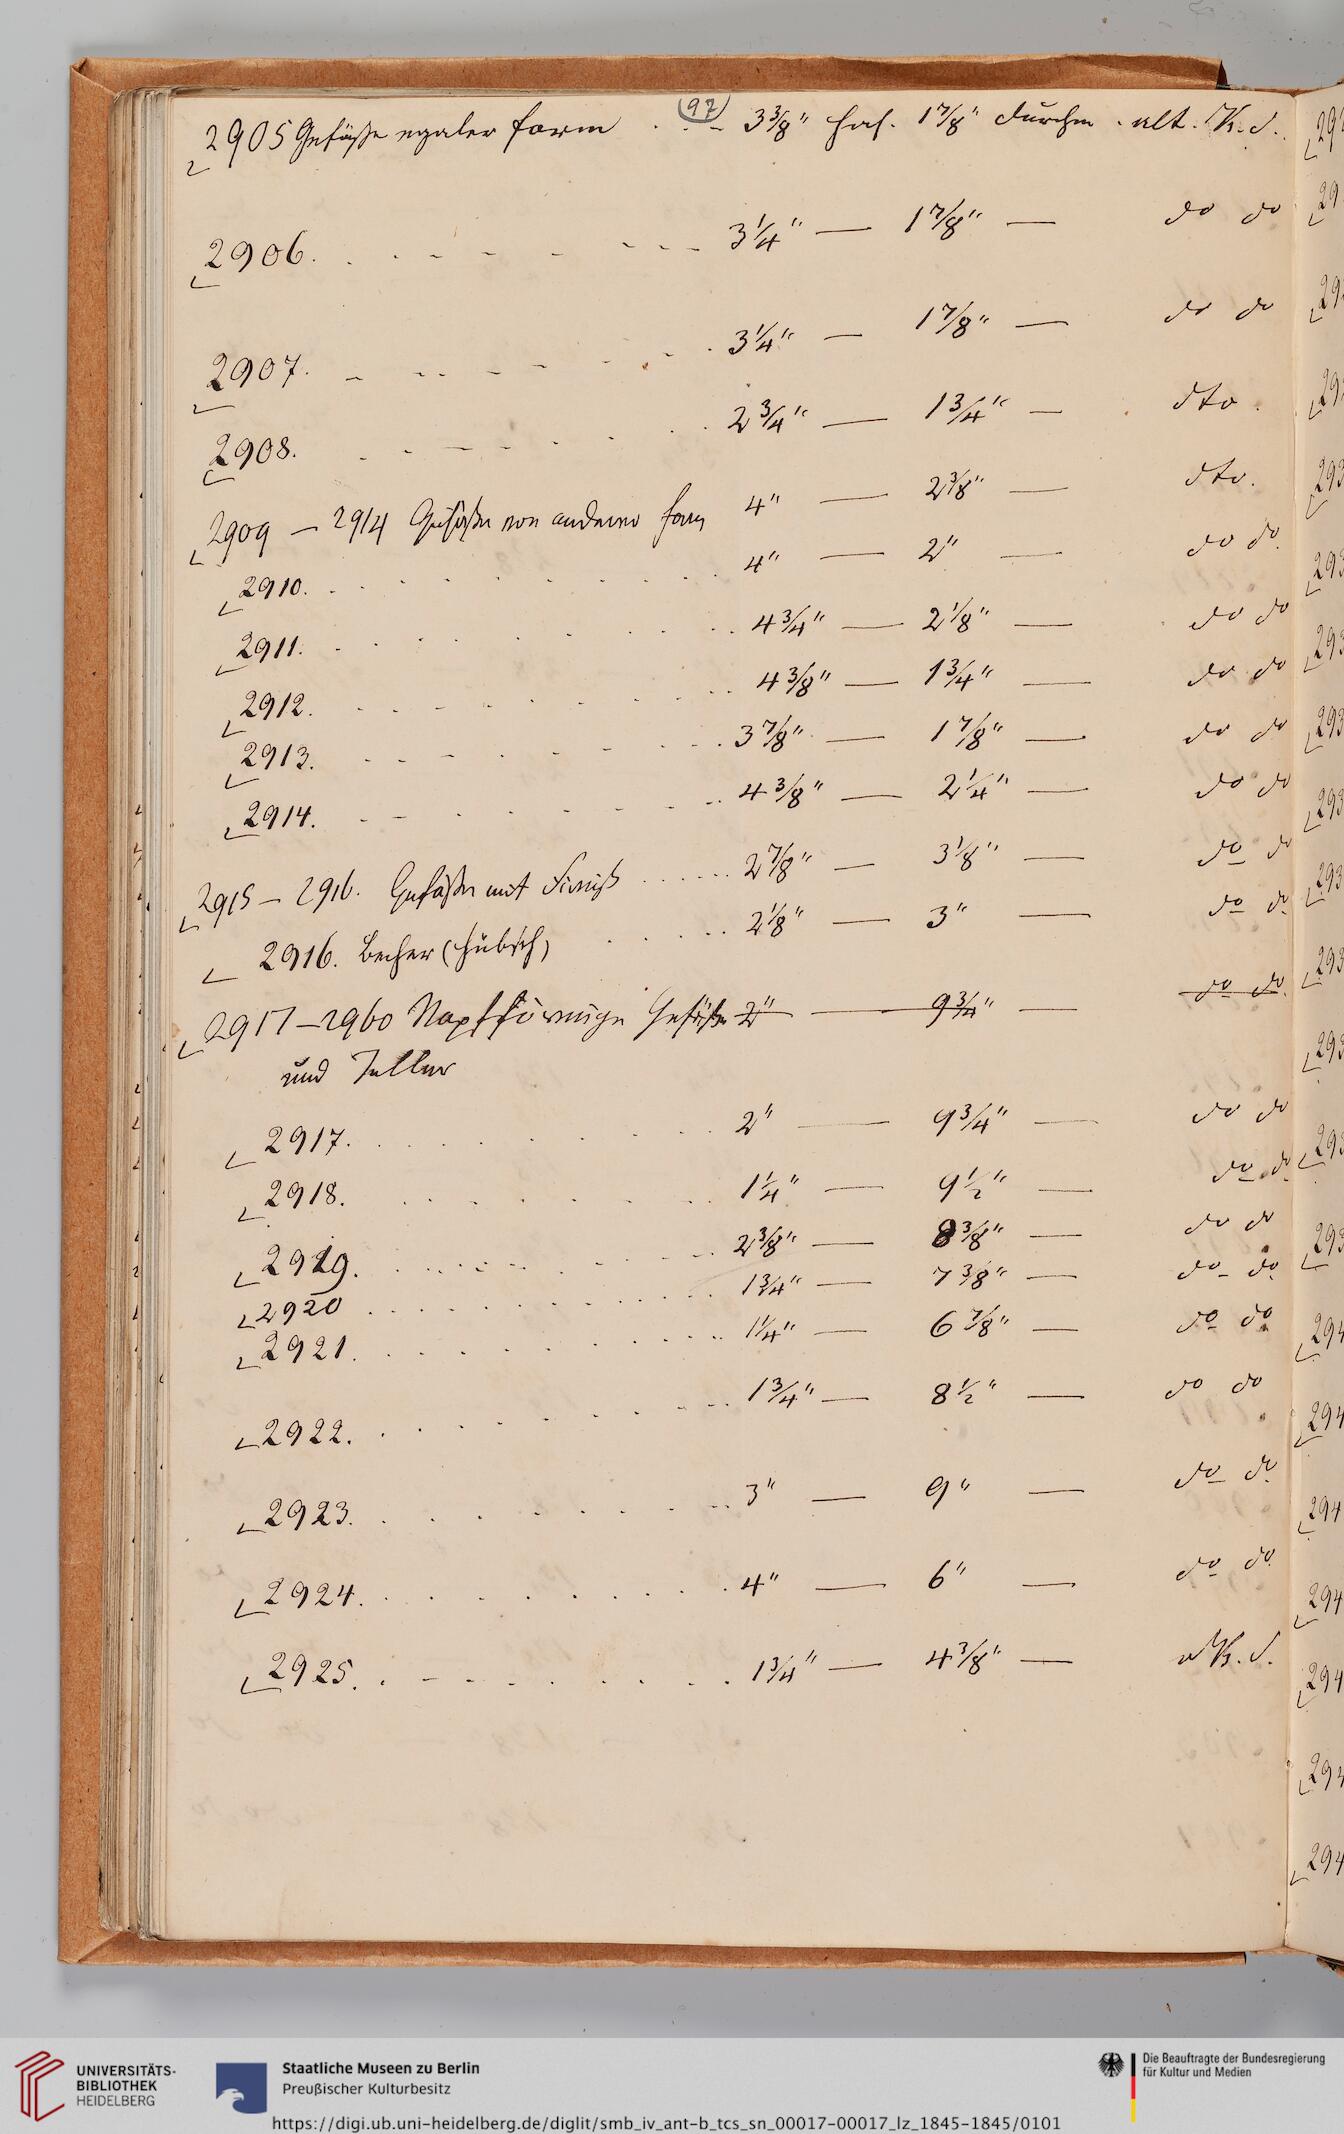 97
2905 Gefäße egaler form . . - 3 3/8" hoch. 1 7/8" durchm. alt.
2906. . . - - - - - - 3 1/4" — 1 7/8" — do do
2907. - . . - - - . . . 3 1/4" — 1 7/8" — do do
2908. . . - - - . . . . 2 3/4" — 1 3/4" — dto.
2909 – 2914 Gefäße von anderer form 4" — 2 3/8" — dto.
2910. . . . . . . . . 4" — 2" — do do
2911. . . . . . . . . 4 3/4" — 2 1/8" — do do
2912. . . . . . . . . 4 3/8" — 1 3/4" — do do
2913. . . . . . . . . 3 7/8" — 1 7/8" — do do
2914. . . . . . . . . 4 3/8" — 2 1/4" — do do
2915 – 2916. Gefäße mit Firniß . . . . . . 2 7/8" — 3 1/8" — do do
2916. Becher (hübsch) . . . . . 2 1/8" — 3" — do do
2917 – 2960 Napfförmige Gefäße 2" — 9 3/4" — do do
und Teller
2917. . . . . . . . . 2" — 9 3/4" — do do
2918. . . . . . . . . 1 1/4" — 9 1/2" — do do
2919. . . . . . . . . 2 3/8" — 8 3/8" — do do
2920 . . . . . . . . . 1 3/4" — 7 3/8" — do do
2921. . . . . . . . . 1 1/4" — 6 7/8" — do do
2922. . . . . . . . . 1 3/4" — 8 1/2" — do do
2923. . . . . . . . . 3" — 9" — do do
2924. . . . . . . . . 4" — 6" — do do
2925. . . . . . . . . 1 3/4" — 4 3/8" —
UNIVERSITÄTS-
BIBLIOTHEK
HEIDELBERG
Staatliche Museen zu Berlin
Preußischer Kulturbesitz
Die Beauftragte der Bundesregierung
für Kultur und Medien
https://digi.ub.uni-heidelberg.de/diglit/smb_iv_ant-b_tcs_sn_00017-00017_lz_1845-1845/0101